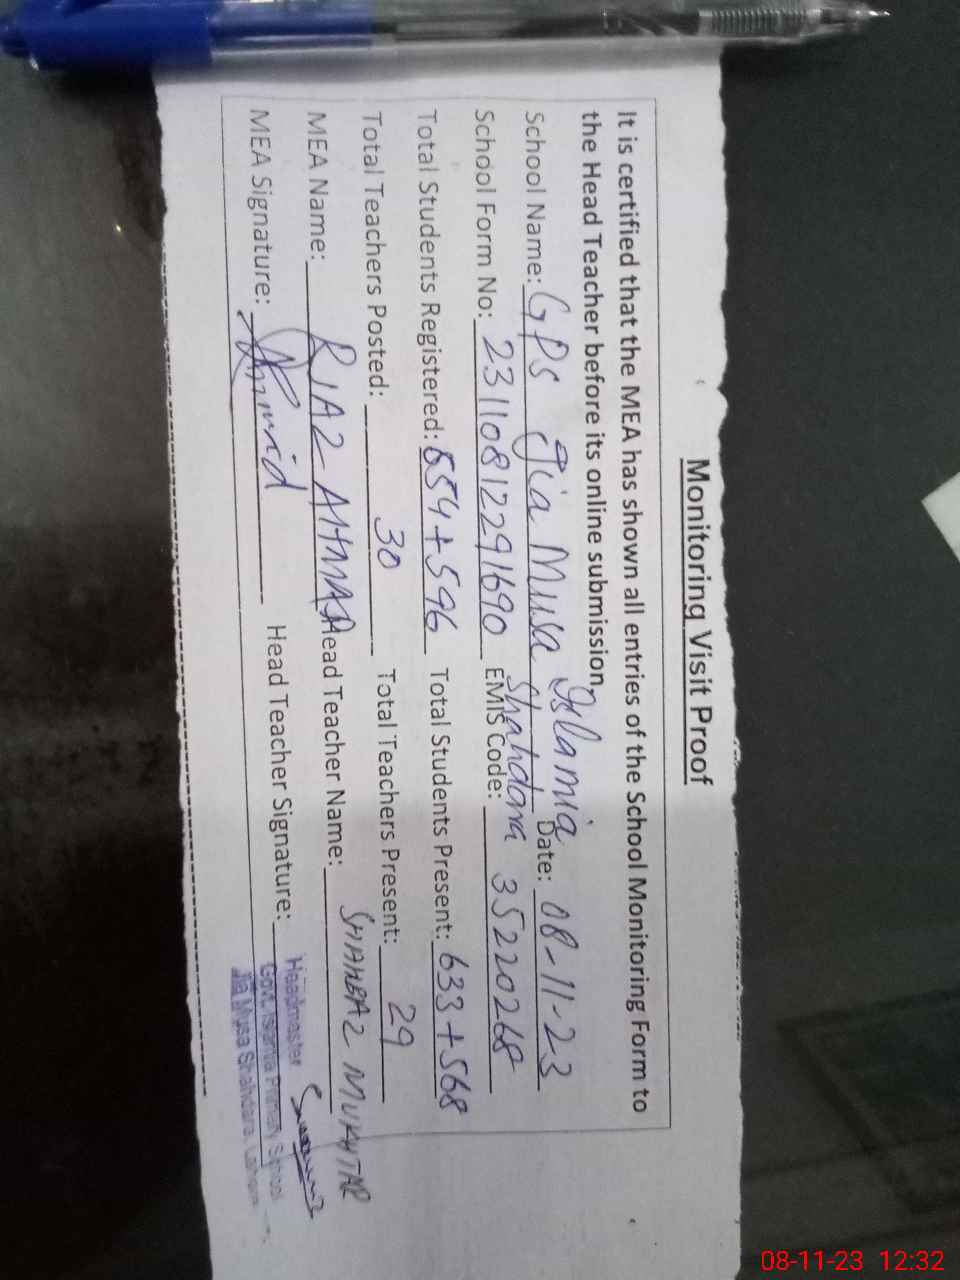 Monitoring Visit Proof
It is certified that the MEA has shown all entries of the School Monitoring Form to
the Head Teacher before its online submission.
School Name: GPS Jia Musa Islamia Shahdara Date: 08-11-23
School Form No: 23110812291690 EMIS Code: 35220268
Total Students Registered: 654+596 Total Students Present: 633+568
Total Teachers Posted: 30 Total Teachers Present: 29
MEA Name: RIAZ AHMAD Head Teacher Name: SHAHBAZ MUKHTAR
MEA Signature: Head Teacher Signature:
Headmaster
Govt. Islamia Primary School
Jia Musa Shahdara, Lahore
08-11-23 12:32